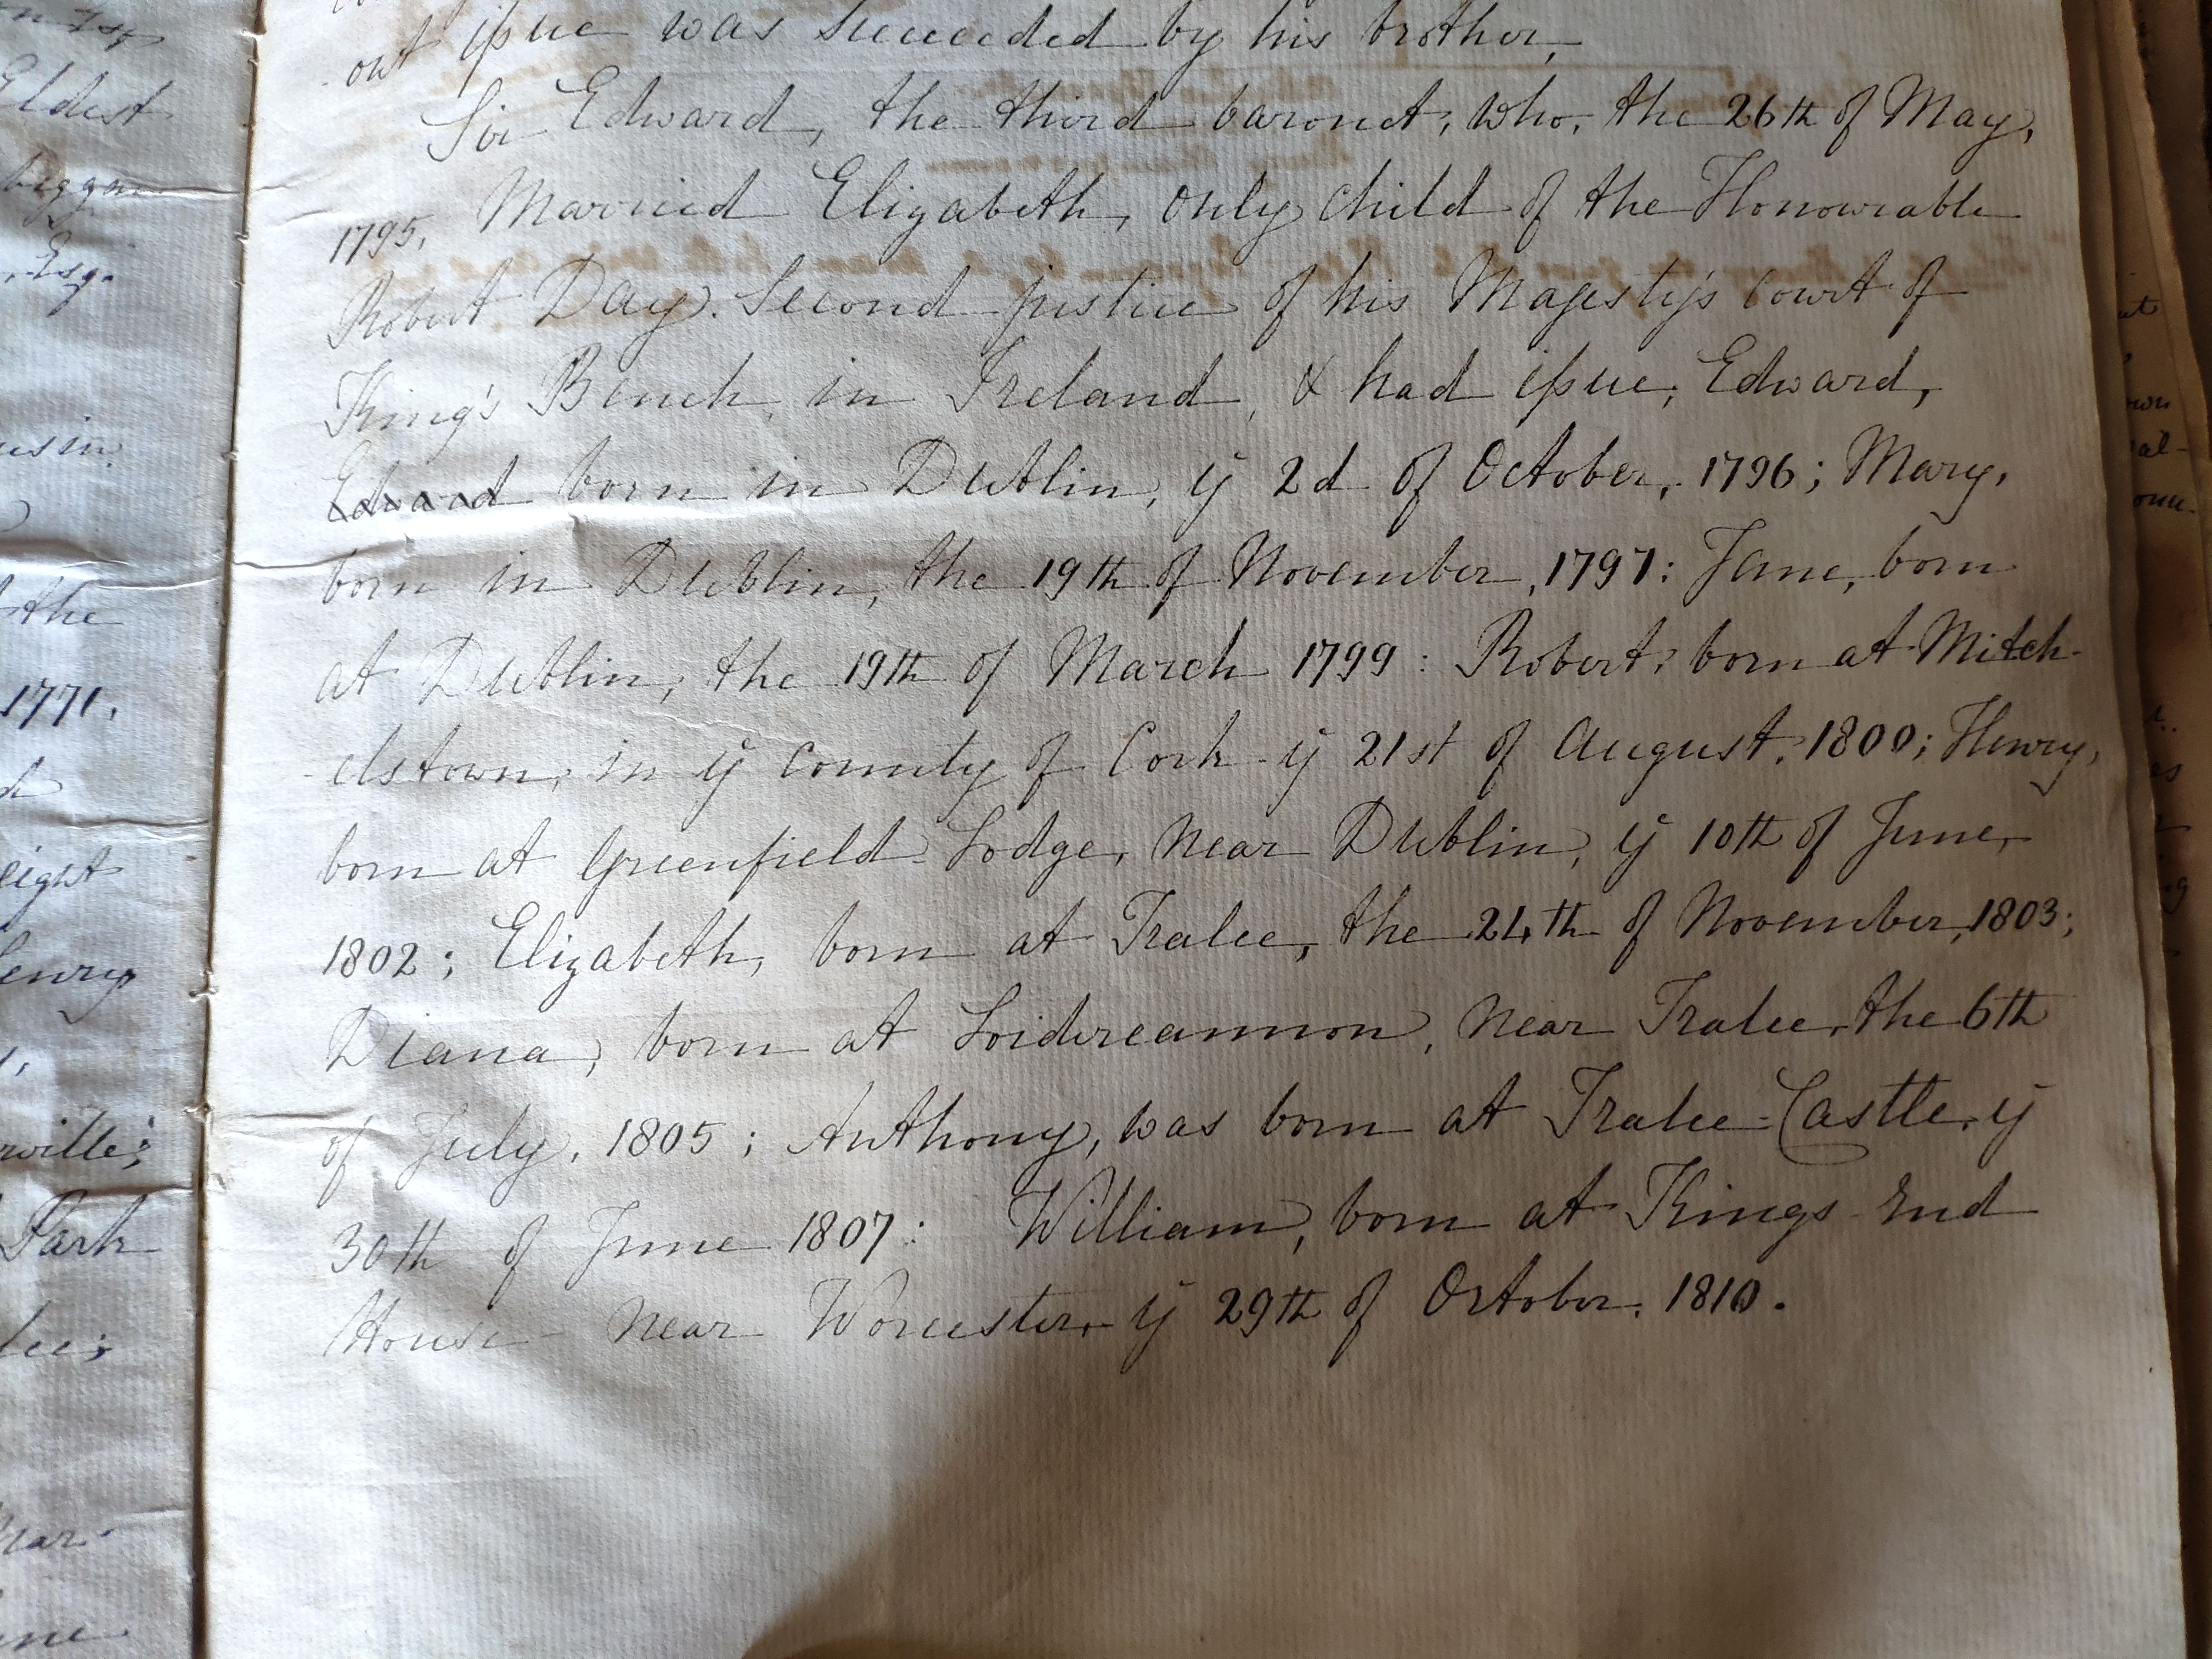 out issue was succeeded by his brother,
Sir Edward, the third baronet, who, the 26th of May,
1795, Married Elizabeth, only child of the Honourable
Robert Day. Second justice of his Majesty's court of
King's Bench, in Ireland, & had issue, Edward,
Edward born in Dublin, ÿ 2d of October, 1796; Mary,
born in Dublin, the 19th of November, 1797: Jane, born
at Dublin, the 19th of March 1799: Robert, born at Mitch-
elstown, in ÿ county of Cork ÿ 21st of August, 1800; Henry,
born at Greenfield-Lodge, near Dublin, ÿ 10th of June,
1802; Elizabeth, born at Tralee, the 24th of November, 1803;
Diana, born at Loidireannon, near Tralee, the 6th
of July, 1805; Anthony, was born at Tralee-Castle, ÿ
30th of June 1807: William, born at Kings End
House near Worcester, ÿ 29th of October, 1810.
Eldest
Esq.
the
1771,
eight
Henry
Park